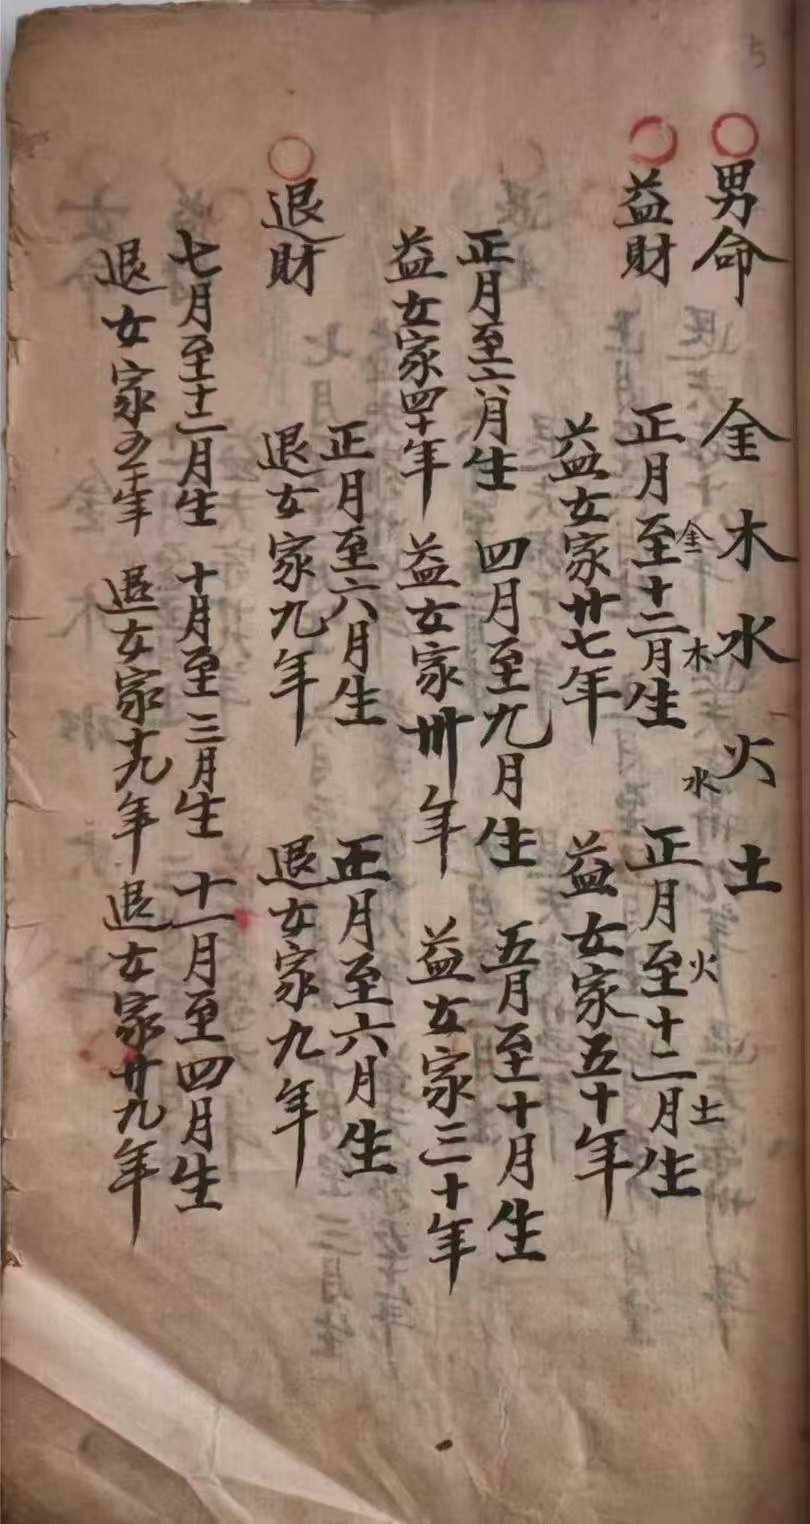 5
男命 金 木 水 火 土
金 木 水 火 土
益財 正月至十二月生 正月至十二月生
益女家廿七年 益女家五十年
正月至六月生 四月至九月生 五月至十月生
益女家四十年 益女家卅年 益女家三十年
退財 正月至六月生 正月至六月生
退女家九年 退女家九年
七月至十二月生 十月至三月生 十一月至四月生
退女家年 退女家十九年 退女家廿九年